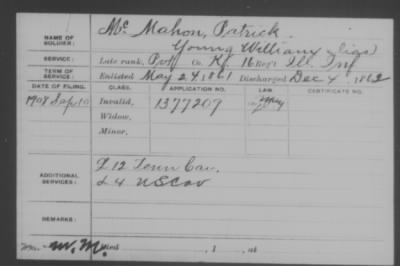 NAME OF SOLDIER: Mc Mahon, Patrick.
Young William alias
SERVICE: Late rank, Pvt Co. K, 16 Reg't Ill. Inf
TERM OF SERVICE: Enlisted May 24, 1861 Discharged Dec 4, 1862
DATE OF FILING. CLASS. APPLICATION NO. LAW. CERTIFICATE NO.
1908 Sep. 10 Invalid, 1377209
Widow,
Minor,
ADDITIONAL SERVICES: L 12 Tenn Cav.
L 4 US Cav
REMARKS:
W.M.